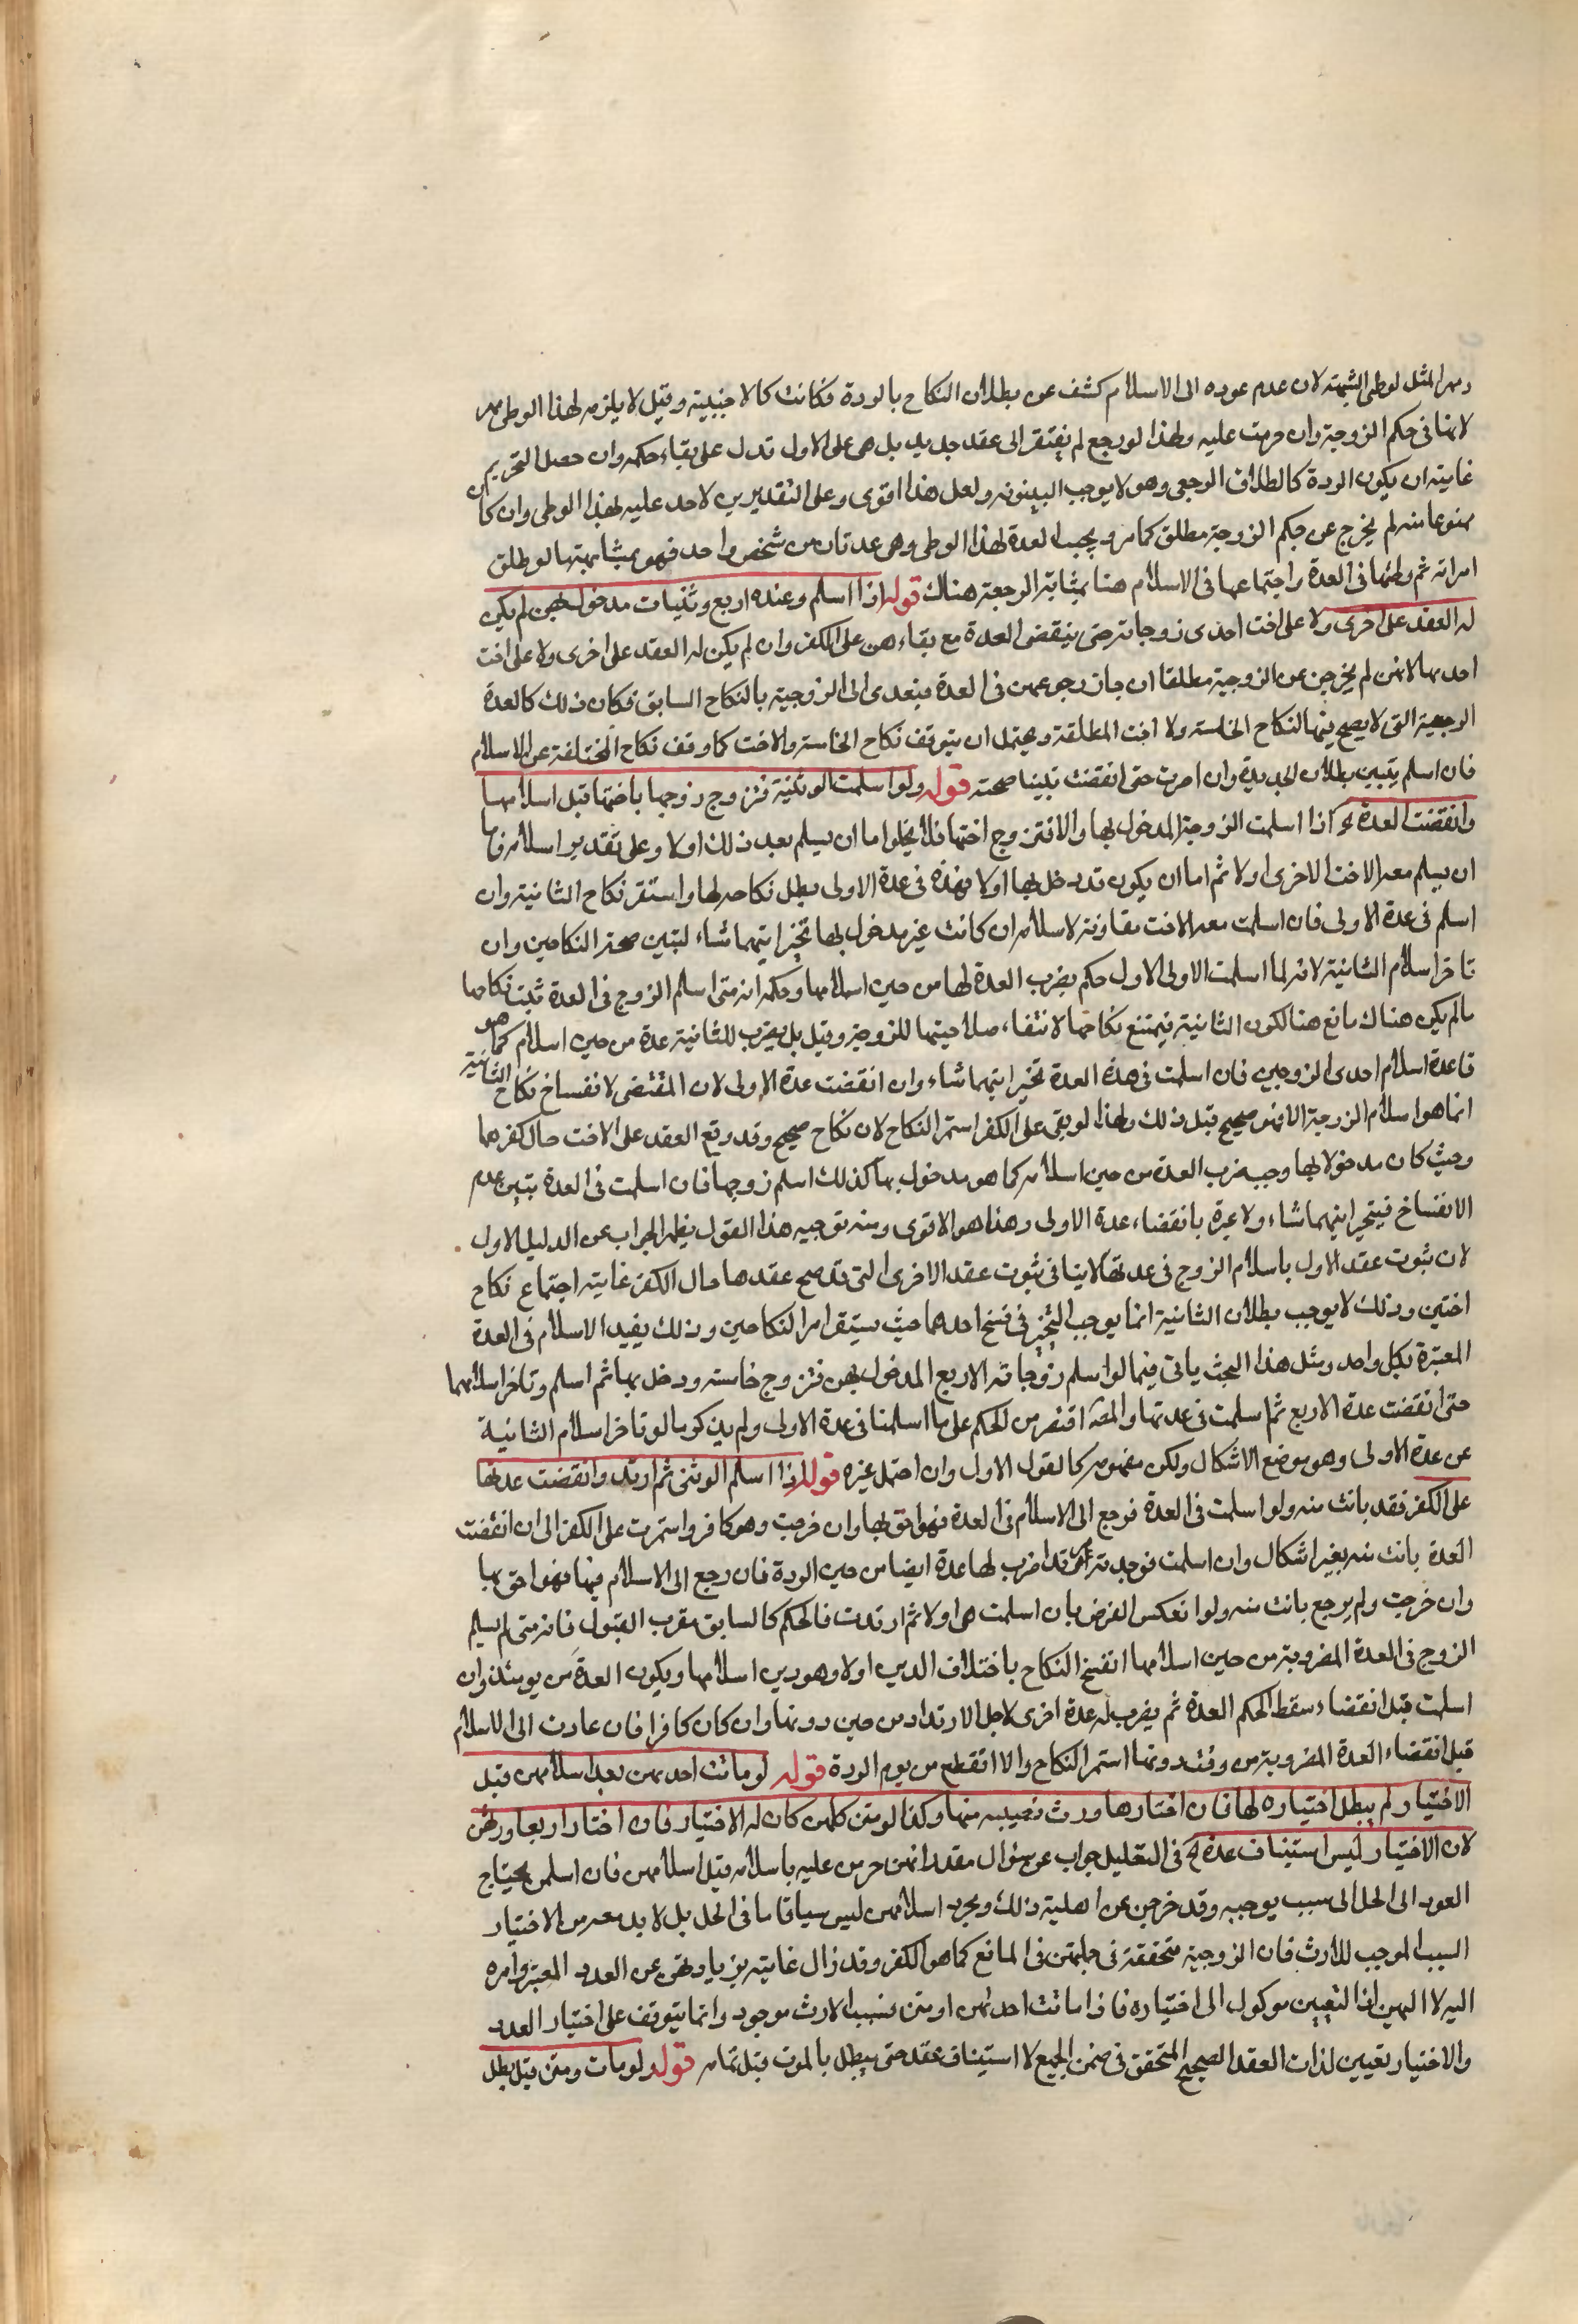 ومهر المثل لوطى الشبهة لان عدم عوده الى الاسلام كشف عن بطلان النكاح بالردة فكانت كالاجنبية وقيل لا يلزمه لهذا الوطى مهر
لانها فى حكم الزوجة وان حرمت عليه ولهذا لو رجع لم يفتقر الى عقد جديد بل هى على الاول فدل على بقاء حكمه وان حصل التحريم
غايته ان يكون الردة كالطلاق الرجعى وهو لا يوجب البينونه ولعل هذا اقوى وعلى التقديرين لاحد عليه لهذا الوطى وان كان
ممنوعا منه لم يخرج عن حكم الزوجية مطلق كما مر ويجب العدة لهذا الوطى وهى عدتان من شخص واحد فهو بمثابتها لو طلق
امراته ثم وطئها فى العدة واجتماعها فى الاسلام هنا بمثابة الرجعة هناك قوله اذا اسلم وعنده اربع وثنيات مدخول بهن لم يكن
له العقد على اخرى ولا على اخت احدى زوجاته حتى ينقضى العدة مع بقاءهن على الكفر وان لم يكن له العقد على اخرى ولا على اخت
احدىها لانهن لم يخرجن عن الزوجية مطلقا ان جاز رجوعهن فى العدة فيعدى الى الزوجية بالنكاح السابق فكان ذلك كالعدة
الرجعية التى لا يصح فيها النكاح الخامسة ولا اخت المطلقة ويحتمل ان يتوقف نكاح الخامسة والاخت كما وقف نكاح المختلفة عن الاسلام
فان اسلم يتبين بطلان الجديدة وان اصرت حتى انقضت تبينا صحته قوله ولو اسلمت الوثنية فتزوج زوجها باختها قبل اسلامها
وانقضت العدة الخ اذا اسلمت الزوجة المدخول بها والا فتزوج اختها فلا يخلوا ما ان يسلم بعد ذلك اولا وعلى تقدير اسلامه فاما
ان يسلم معه الاخت الاخرى اولا ثم اما ان يكون قد دخل بها اولا فهذه فى عدة الاولى بطل نكاحه لها واستقر نكاح الثانية وان
اسلم فى عدة الاولى فان اسلمت معه الاخت مقارنة لاسلامه ان كانت غير مدخول بها تخير ايتهما شاء لتبين صحة النكاحين وان
تاخر اسلام الثانية لانه لما اسلمت الاولى الاول حكم بضرب العدة لها من حين اسلامها وحكمه انه متى اسلم الزوج فى العدة ثبت نكاحها
ما لم يكن هناك مانع هنا لكون الثانية فيمتنع نكاحها لانتفاء صلاحيتها للزوجية وقيل بل يضرب للثانية عدة من حين اسلام كما هو
قاعدة اسلام احدى الزوجين فان اسلمت فى هذه العدة تخير ايتهما شاء وان انقضت عدة الاولى لان المقتضى لانفساخ نكاح الثانية
انما هو اسلام الزوجة الا فهو صحيح قبل ذلك ولهذا لو بقى على الكفر استمر النكاح لان نكاح صحيح وقد وقع العقد على الاخت حال كفرهما
وحيث كان مدخولا بها وجب ضرب العدة من حين اسلامه كما هو مدخول بها كذلك اسلم زوجها فان اسلمت فى العدة تبين عدم
الانفساخ فيتخير ايتهما شاء ولا عبرة بانقضاء عدة الاولى وهذا هو الاقوى ومنه توجيه هذا القول يظهر الجواب عن الدليل الاول
لان ثبوت عقد الاول باسلام الزوج فى عدتها لا ينافى ثبوت عقد الاخرى التى قد صح عقدها حال الكفر غايته اجتماع نكاح
اختين وذلك لا يوجب بطلان الثانية انما يوجب التخير فى فسخ احدهما حيث يستقر امر النكاحين وذلك يفيد الاسلام فى العدة
المعتبرة بكل واحد ومثل هذا البحث ياتى فيما لو اسلم زوجاته الاربع المدخول بهن فتزوج خامسه ودخل بها ثم اسلم وتاخر اسلامها
حتى انقضت عدة الاربع ثم اسلمت فى عدتها والمصـ اقتصر من الحكم على ما اسلمتا فى عدة الاولى ولم يذكر ما لو تاخر اسلام الثانية
عن عدة الاولى وهو موضع الاشكال ولكن مفهومه كالقول الاول وان احتمل غيره قوله اذا اسلم الوثنى ثم ارتد وانقضت عدتها
على الكفر فقد بانت منه ولو اسلمت فى العدة فرجع الى الاسلام فى العدة فهو احق بها وان خرجت وهو كافر واستمرت على الكفر الى ان انقضت
العدة بانت منه بغير اشكال وان اسلمت فوجدته مرتدا ضرب لها عدة ايضا من حين الردة فان رجع الى الاسلام فيها فهو احق بها
وان خرجت ولم يرجع بانت منه ولو انعكس الفرض بان اسلمت هى اولا ثم ارتدت فالحكم كالسابق بقرب القبول فانه متى لم يسلم
الزوج فى العدة المضروبة من حين اسلامها انفسخ النكاح باختلاف الدين اولا وهو دين اسلامها ويكون العدة من يومئذ وان
اسلمت قبل انقضاء سقط الحكم العدة ثم يضرب له عدة اخرى لاجل الارتداد من حين ردتها وان كان كافرا فان عادت الى الاسلام
قبل انقضاء العدة المضروبة من وقت ردتها استمر النكاح والا انقطع من يوم الردة قوله لو ماتت احدىهن بعد اسلامهن قبل
الاختيار لم يبطل اختياره لها فان اختارها ورث نصيبه منها وكذا لو متن كلهن كان له الاختيار فان اختار اربعا ورثهن
لان الاختيار ليس استيناف عدة الخ فى التعليل جواب عن سؤال مقدر انهن حرمن عليه باسلامه قبل اسلامهن فان اسلمن يحتاج
العود الى الحل الى سبب يوجبه وقد خرجن عن اهلية ذلك ومجرد اسلامهن ليس سببا تاما فى الحل بل لابد معه من الاختيار
السبب الموجب للارث فان الزوجية متحققة فى جملتهن فى المانع كما هو الكفر وقد زال غايته يزيادتهن عن العدد المعتبر وامره
اليه لا اليهن اذا لتعيين موكول الى اختياره فاذا ماتت احدىهن او متن فسبب الارث موجود وانما يتوقف على اختيار العدد
والاختيار تعيين لذات العقد الصحيح المتحقق فى ضمن الجميع لا استيناف عقد حتى يبطل بالموت قبل تمامه قوله لو مات ومتن قيل بطل